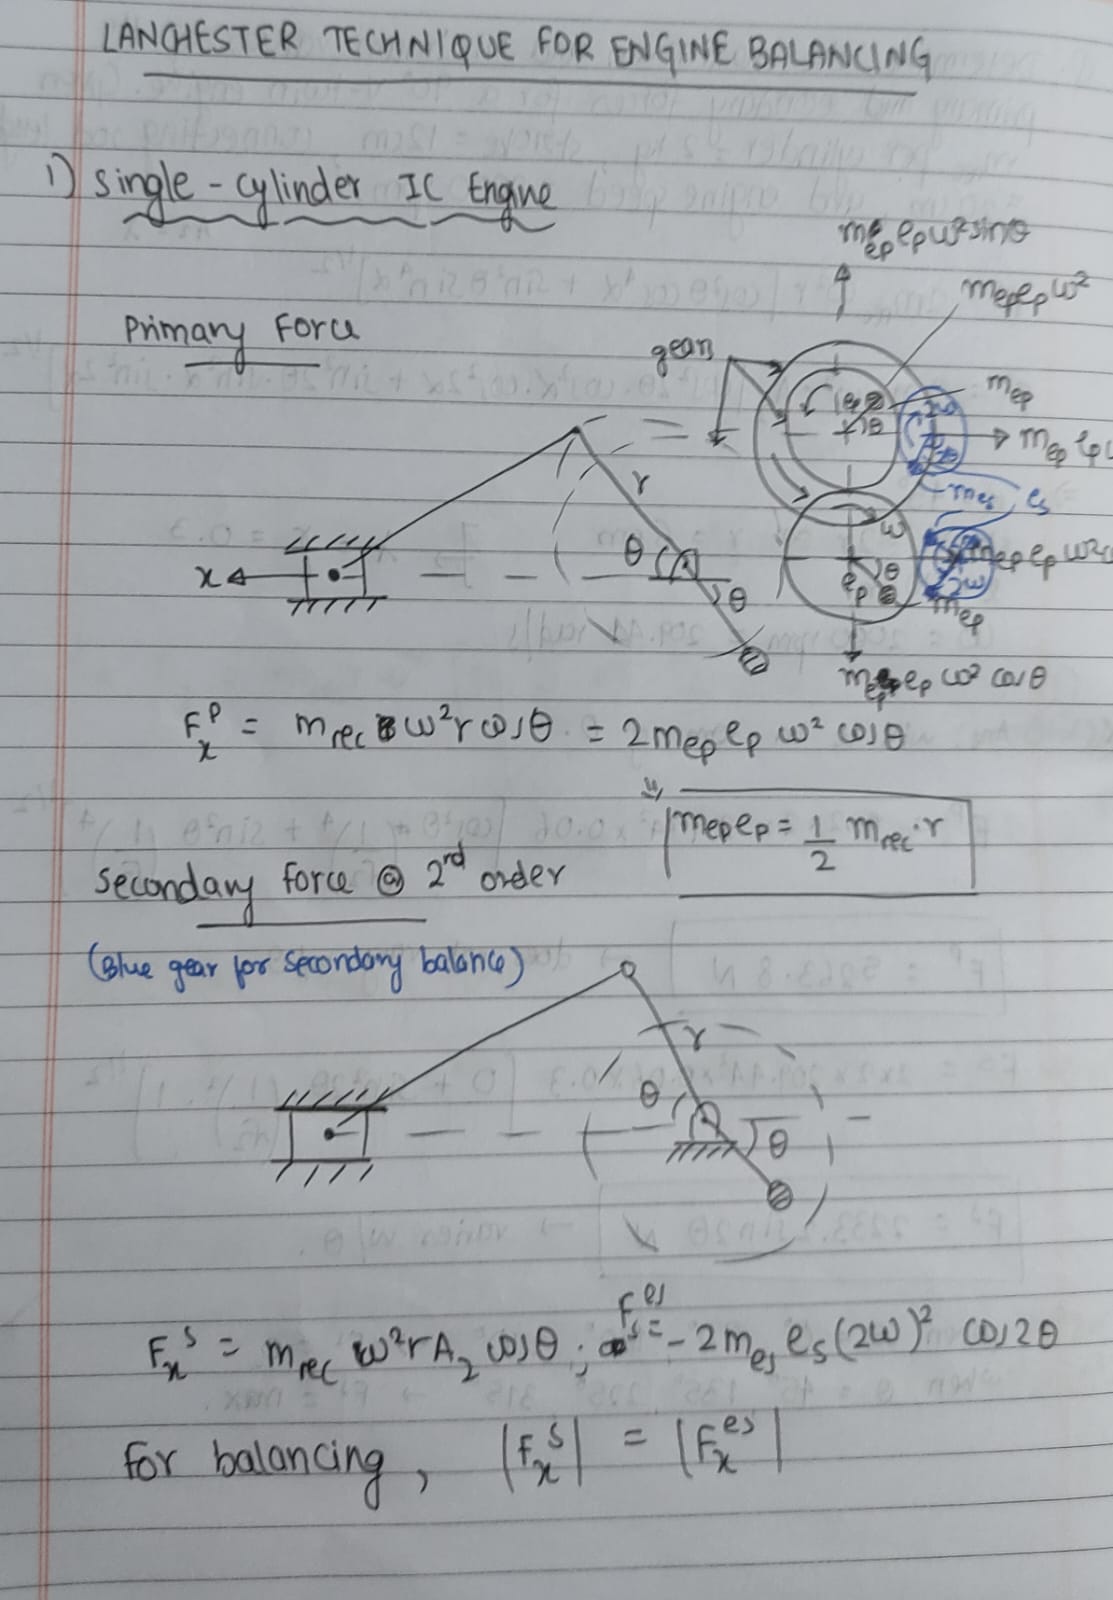 LANCHESTER TECHNIQUE FOR ENGINE BALANCING
1) Single-cylinder IC Engine
Primary Force
m_ep e_p ω² sinθ
m_ep e_p ω²
gears
m_ep
θ
m_ep e_p
m_es
e_s
r
ω
θ
x
θ
θ
e_p
2ω
m_ep e_p ω²
m_ep
m_ep e_p ω² cosθ
F_x^P = m_rec ω² r cosθ = 2 m_ep e_p ω² cosθ
m_ep e_p = 1/2 m_rec · r
Secondary force @ 2^rd order
(Blue gear for secondary balance)
r
θ
θ
F_x^S = m_rec ω² r A_2 cosθ ; F_s^es = - 2 m_es e_s (2ω)² cos2θ
for balancing, |F_x^S| = |F_x^es|